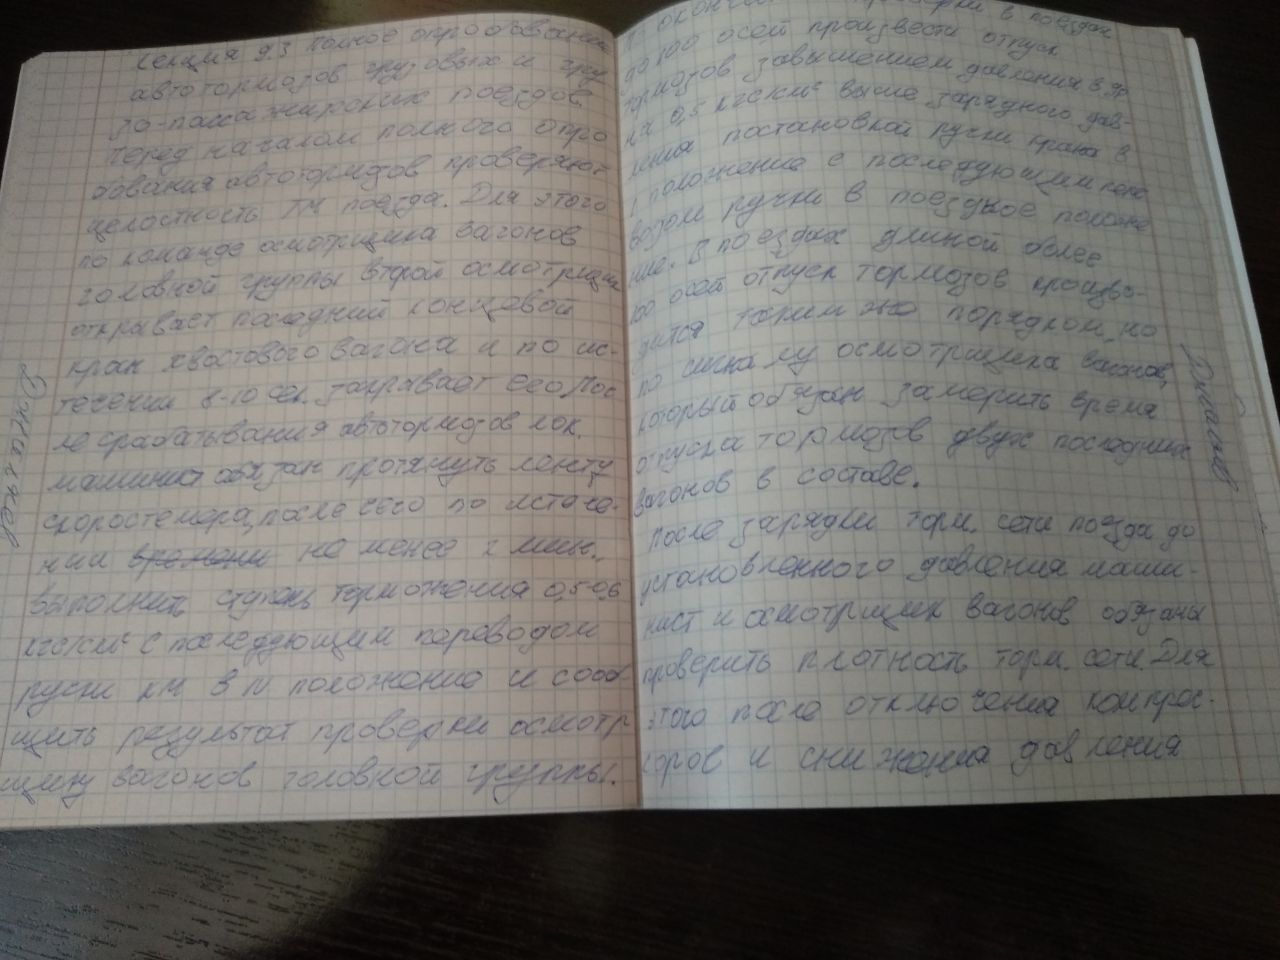 Лекция 9.3 Полное опробование
автотормозов грузовых и гру
зо-пассажирских поездов.
Перед началом полного опро
бования автотормозов проверяют
целостность ТМ поезда. Для этого
по команде осмотрщика вагонов
головной группы второй осмотрщик
открывает последний концевой
кран хвостового вагона и по ис-
течении 8-10 сек. закрывает его. Пос
ле срабатывания автотормозов лок.
машинист обязан протянуть ленту
скоростемера, после чего по истече-
нии времени не менее 2 мин.,
выполнить ступень торможения 0,5-0,6
кгс/км² с последующим переводом
ручки км в IV положение и сооб
щить результат проверки осмотр
щику вагонов головной группы.
в поездах
до 100 осей произвести отпуск
тормозов завышением давления в
на 0,5 кгс/км² выше зарядного дав-
ления постановкой ручки крана в
I положение с последующим пере
водом ручки в поездное положе
ние. В поездах длиной более
100 осей отпуск тормозов произво-
дится таким же порядком, но
по сигналу осмотрщика вагонов,
который обязан замерить время
отпуска тормозов двух последних
вагонов в составе.
После зарядки торм. сети поезда до
установленного давления маши-
нист и осмотрщик вагонов обязаны
проверить плотность торм. сети. Для
этого после отключения компрес-
соров и снижения давления